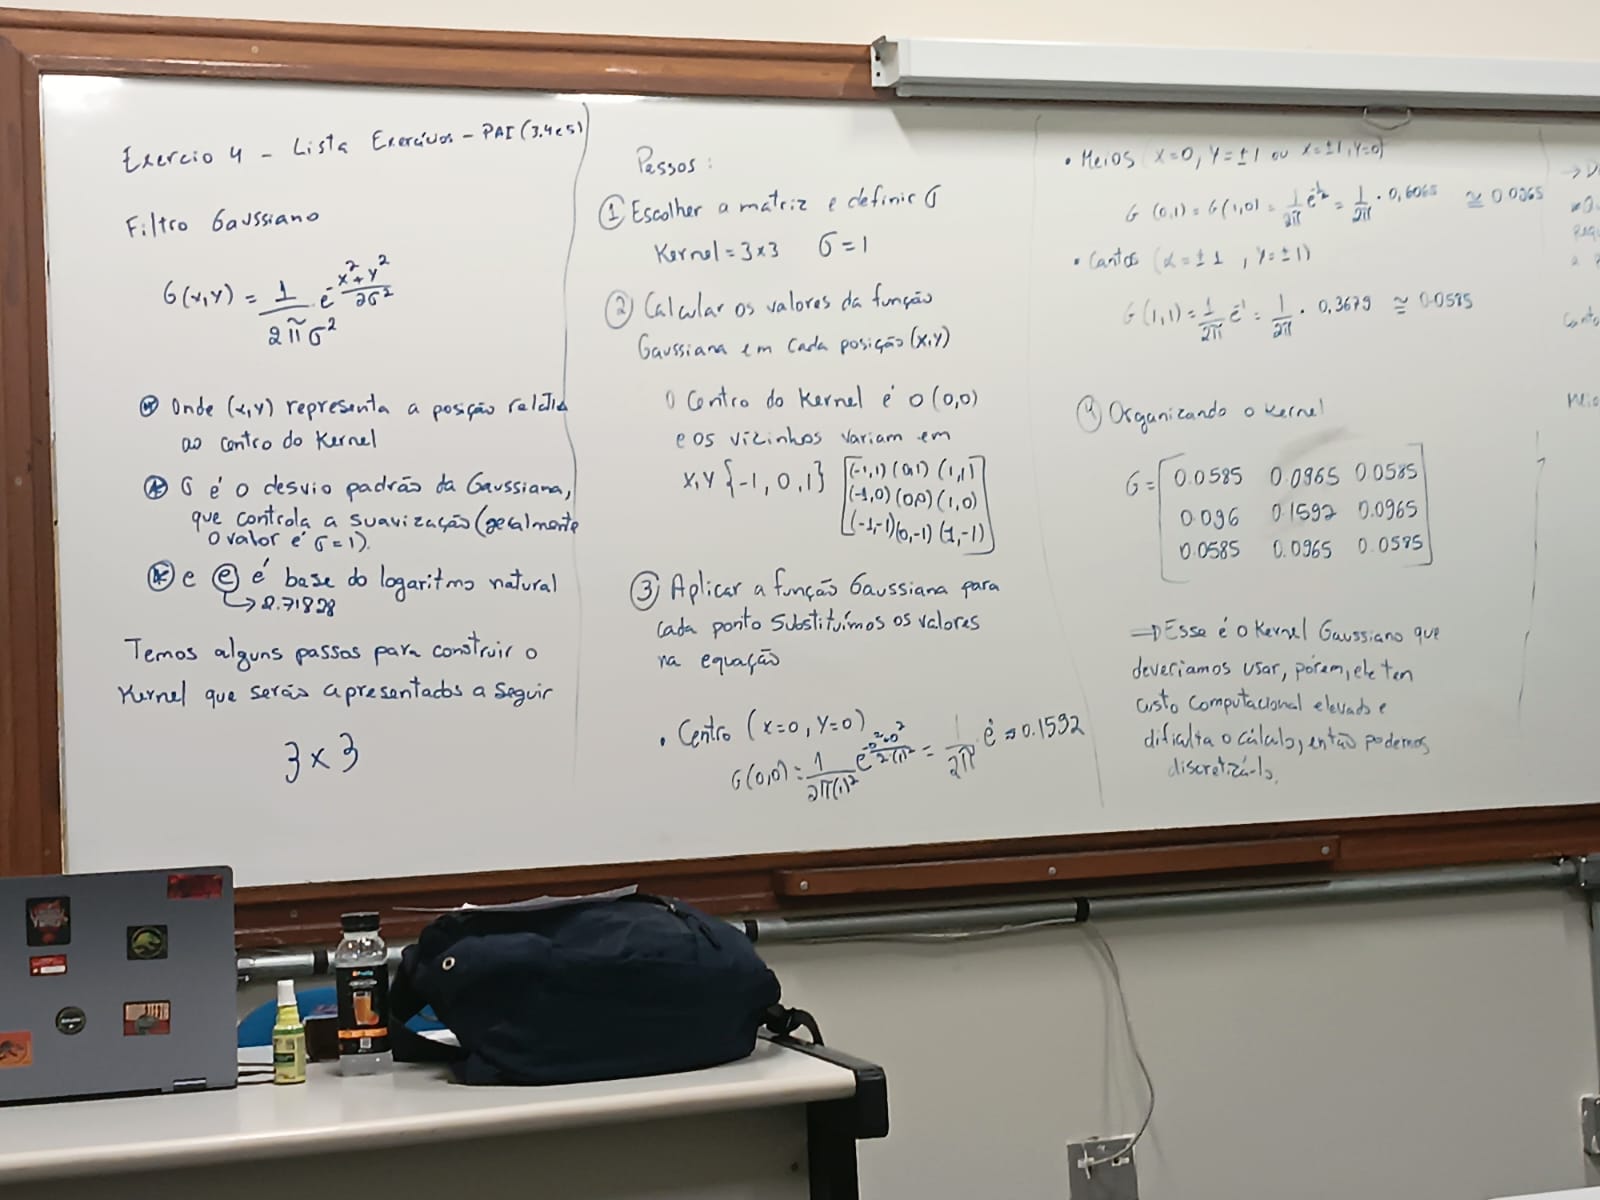 Exercio 4 - Lista Exercícios - PAI (3.4e5)
Filtro Gaussiano
G(x,y) = 1/2πσ² e^-(x²+y²)/2σ²
Onde (x,y) representa a posição
ao centro do Kernel
σ é o desvio padrão da Gaussiana,
que controla a suavização (geralmente
o valor é σ=1).
e e é base do logaritmo natural
→ 2.71828
Temos alguns passos para construir o
Kernel que serão apresentados a seguir
3x3
Passos:
① Escolher a matriz e definir σ
Kernel = 3x3 σ=1
② Calcular os valores da função
Gaussiana em cada posição (x,y)
O Centro do Kernel é o (0,0)
e os vizinhos variam em
x,y {-1, 0, 1}
(-1,1) (0,1) (1,1)
(-1,0) (0,0) (1,0)
(-1,-1) (0,-1) (1,-1)
③ Aplicar a função Gaussiana para
cada ponto Substituímos os valores
na equação
• Centro (x=0, y=0)
G(0,0) = 1/2π(1)² e^-(0²+0²)/2(1)² = 1/2π e ≈ 0.1592
• Meios (x=0, y=±1 ou x=±1, y=0)
G(0,1) = G(1,0) = 1/2π e^-1/2 = 1/2π • 0,6065 ≅ 0.0965
• Cantos (x=±1, y=±1)
G(1,1) = 1/2π e^-1 = 1/2π • 0,3679 ≅ 0.0585
④ Organizando o kernel
G = 0.0585 0.0965 0.0585
0.096 0.1592 0.0965
0.0585 0.0965 0.0585
⇒ Esse é o Kernel Gaussiano que
deveriamos usar, porem, ele tem
custo computacional elevado e
dificulta o cálculo, então podemos
discretizá-lo.